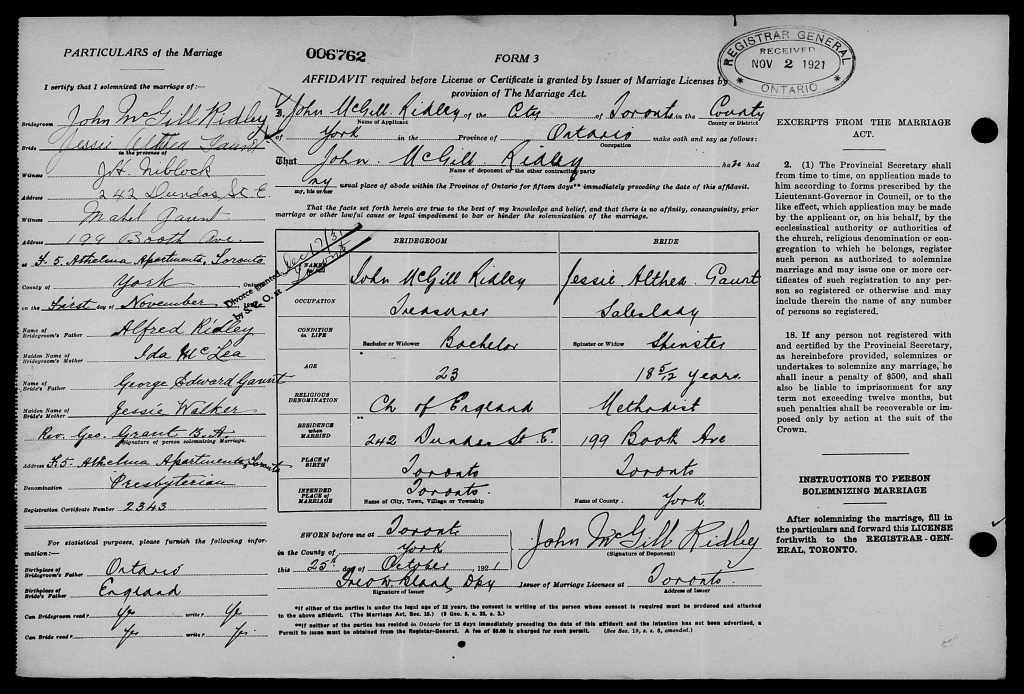 PARTICULARS of the Marriage
I certify that I solemnized the marriage of:—
Bridegroom John McGill Ridley
Bride Jessie Althea Gaunt
in the presence of
Witness J.H. Niblock
Address 242 Dundas St. E.
Witness Mabel Gaunt
Address 199 Booth Ave.
at F. 5 Athelma Apartments, Toronto
County of York Ontario
on the First day of November
Name of Bridegroom's Father Alfred Ridley
Maiden Name of Bridegroom's Mother Ida McLea
Name of Bride's Father George Edward Gaunt
Maiden Name of Bride's Mother Jessie Walker
Rev. Geo. Grant B.A.
Signature of person solemnizing Marriage.
Address F.5. Athelma Apartments, Toronto
Denomination Presbyterian
Registration Certificate Number 2343
For statistical purposes, please furnish the following information:—
Birthplace of Bridegroom's Father Ontario
Birthplace of Bride's Father England
Can Bridegroom read? Yes write? Yes
Can Bride read? Yes write? Yes
006762
FORM 3
AFFIDAVIT required before License or Certificate is granted by Issuer of Marriage Licenses by
provision of The Marriage Act.
I, John McGill Ridley of the City of Toronto in the County
Name of Applicant County or District
of York in the Province of Ontario make oath and say as follows:
Occupation
That John McGill Ridley he had
Name of deponent or the other contracting party
my usual place of abode within the Province of Ontario for fifteen days** immediately preceding the date of this affidavit.
my, his or her
That the facts set forth herein are true to the best of my knowledge and belief, and that there is no affinity, consanguinity, prior
marriage or other lawful cause or legal impediment to bar or hinder the solemnization of the marriage.
Divorce granted
by S.C.O. at
BRIDEGROOM BRIDE
NAME John McGill Ridley Jessie Althea Gaunt
OCCUPATION Treasurer Saleslady
CONDITION IN LIFE Bachelor or Widower Bachelor Spinster or Widow Spinster
AGE 23 18 5/12 years
RELIGIOUS DENOMINATION Ch of England Methodist
RESIDENCE when MARRIED 242 Dundas St E. 199 Booth Ave
PLACE OF BIRTH Toronto Toronto
INTENDED PLACE OF MARRIAGE Toronto York
Name of City, Town, Village or Township Name of County
SWORN before me at Toronto
in the County of York
this 25th day of October 1921
John McGill Ridley
(Signature of Deponent)
Dpy Issuer of Marriage Licenses at Toronto
Signature of Issuer Address of Issuer
*If either of the parties is under the legal age of 18 years, the consent in writing of the person whose consent is required must be produced and attached
to the above affidavit. (The Marriage Act, Sec. 15.) (9 Geo. 5, c. 35, s. 3.)
**If neither of the parties has resided in Ontario for 15 days immediately preceding the date of this affidavit and the intention has not been advertised, a
Permit to issue must be obtained from the Registrar-General. A fee of $5.00 is charged for such permit. (See Sec. 19, s. s. 6, amended.)
REGISTRAR GENERAL
RECEIVED
NOV 2 1921
ONTARIO
EXCERPTS FROM THE MARRIAGE
ACT.
2. (1) The Provincial Secretary shall
from time to time, on application made to
him according to forms prescribed by the
Lieutenant-Governor in Council, or to the
like effect, which application may be made
by the applicant or, on his behalf, by the
ecclesiastical authority or authorities of
the church, religious denomination or con-
gregation to which he belongs, register
such person as authorized to solemnize
marriage and may issue one or more certi-
ficates of such registration to any per-
son so registered or otherwise and may
include therein the name of any number
of persons so registered.
18. If any person not registered with
and certified by the Provincial Secretary,
as hereinbefore provided, solemnizes or
undertakes to solemnize any marriage, he
shall incur a penalty of $500, and shall
also be liable to imprisonment for any
term not exceeding twelve months, but
such penalties shall be recoverable or im-
posed only by action at the suit of the
Crown.
INSTRUCTIONS TO PERSON
SOLEMNIZING MARRIAGE
After solemnizing the marriage, fill in
the particulars and forward this LICENSE
forthwith to the REGISTRAR-GEN-
ERAL, TORONTO.